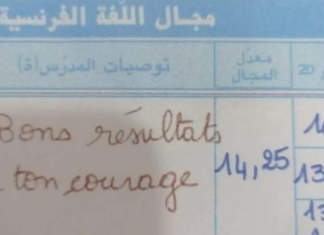 مجال اللّغة الفرنسية
توصيات المدرّس(ة) معدّل المجال 20
Bons résultats 14,25
ton courage 13
13